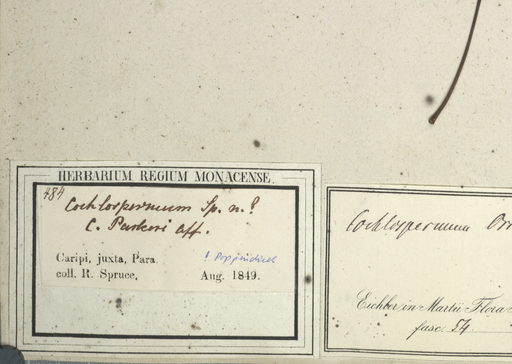 HERBARIUM REGIUM MONACENSE.
484
Cochlospermum Sp. n.?
C. Parkeri aff.
Caripi, juxta, Para.
coll. R. Spruce, Aug. 1849.
Cochlospermum
Eichler in Martii Flora
fasc. 54